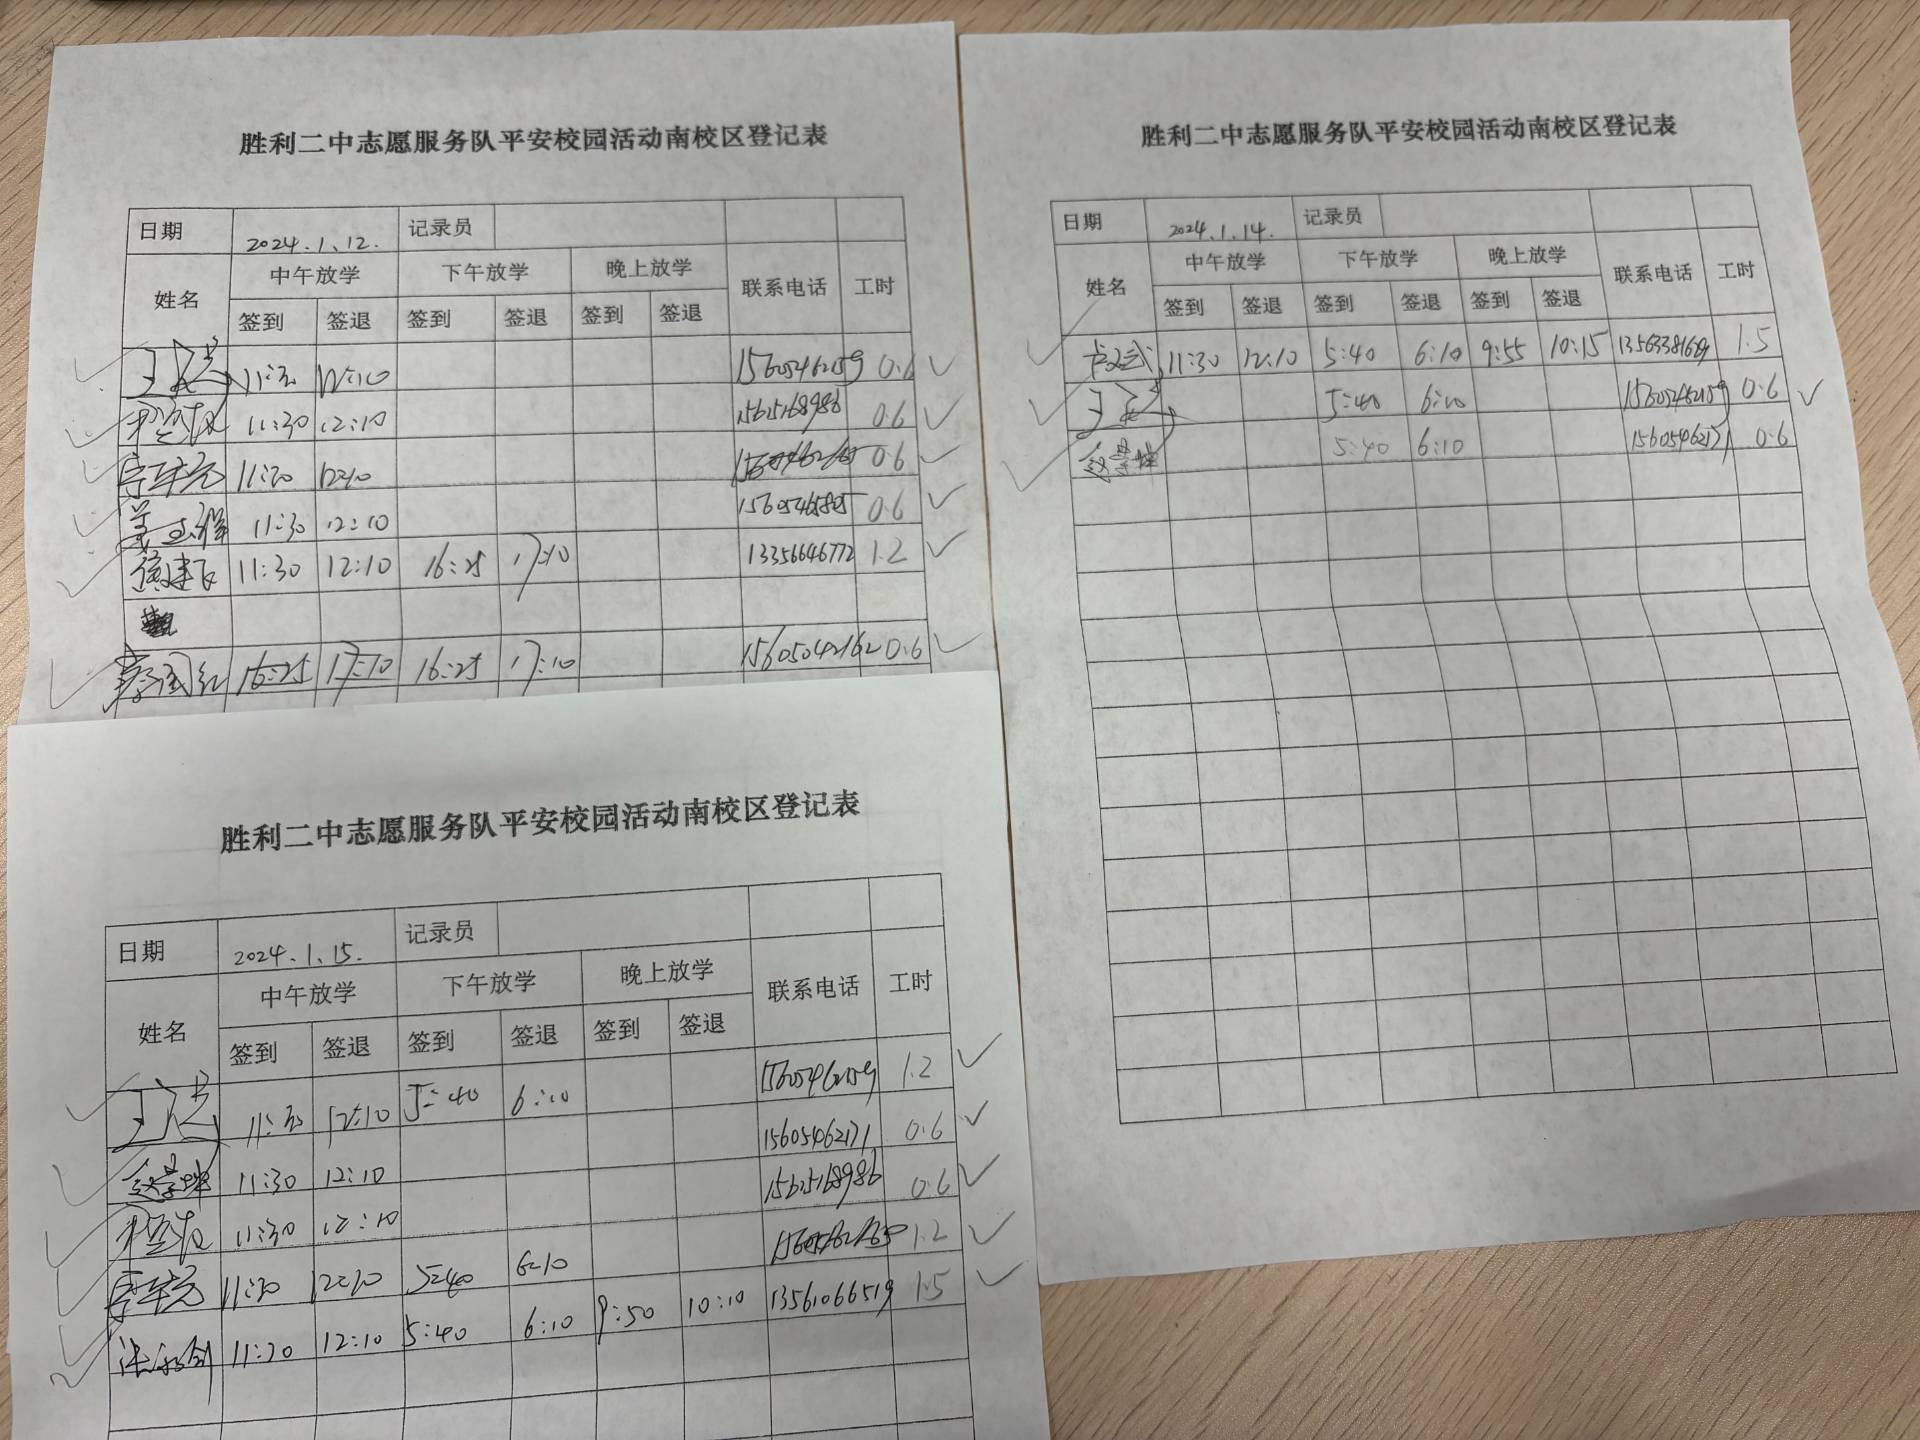 胜利二中志愿服务队平安校园活动南校区登记表
日期 2024.1.12. 记录员
姓名 中午放学 下午放学 晚上放学 联系电话 工时
签到 签退 签到 签退 签到 签退
11:30 12:10 15605462159 0.6
11:30 12:10 15625168986 0.6
11:30 12:10 0.6
11:30 12:10 0.6
11:30 12:10 16:25 17:10 13356646772 1.2
16:25 17:10 16:25 17:10 15605042162 0.6
胜利二中志愿服务队平安校园活动南校区登记表
日期 2024.1.14. 记录员
姓名 中午放学 下午放学 晚上放学 联系电话 工时
签到 签退 签到 签退 签到 签退
11:30 12:10 5:40 6:10 9:55 10:15 1.5
5:40 6:10 15605462159 0.6
5:40 6:10 15605462171 0.6
胜利二中志愿服务队平安校园活动南校区登记表
日期 2024.1.15. 记录员
姓名 中午放学 下午放学 晚上放学 联系电话 工时
签到 签退 签到 签退 签到 签退
11:30 12:10 5:40 6:10 15605462159 1.2
11:30 12:10 15605462171 0.6
11:30 12:10 15625168986 0.6
11:30 12:10 5:40 6:10 1.2
11:30 12:10 5:40 6:10 9:50 10:10 13561066519 1.5